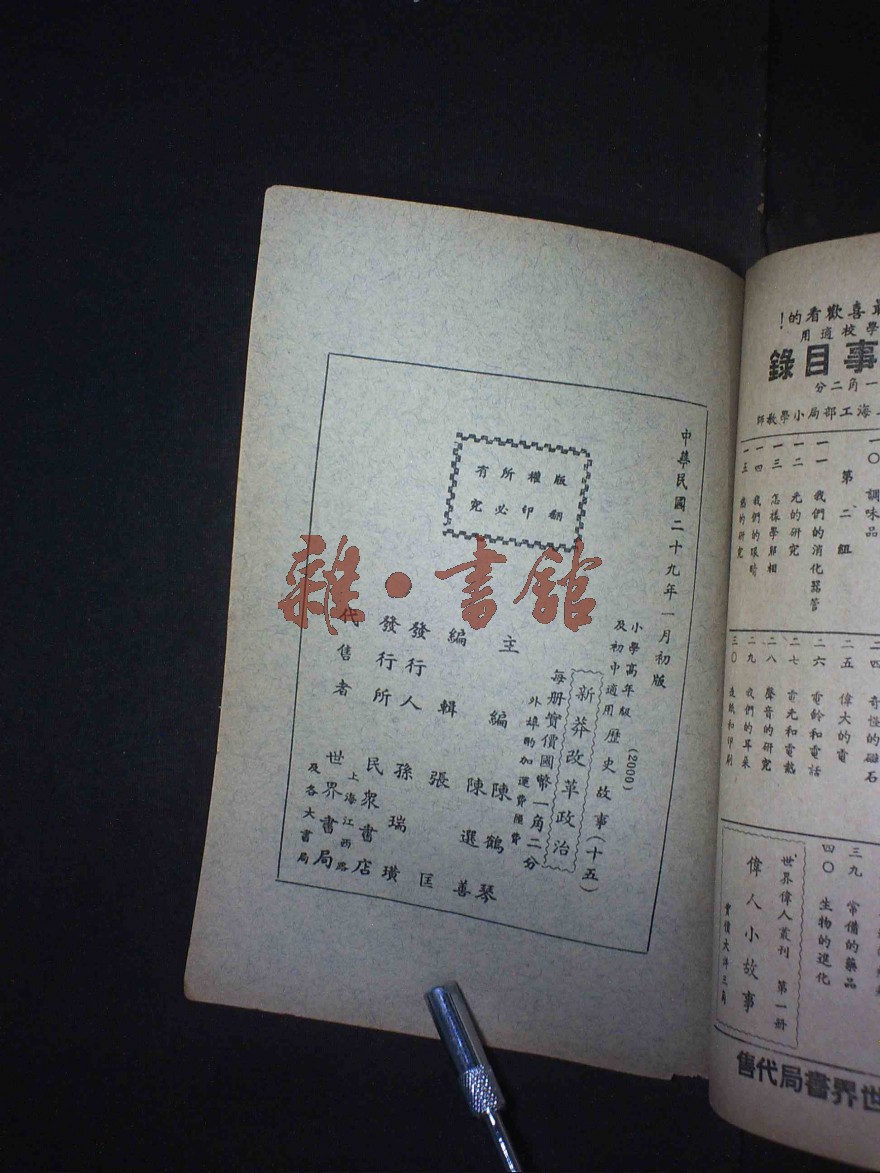 中華民國二十九年一月初版
小學高年級
及初中適用
歷史故事(十五)
(2000)
新莽改革政治
每册實價國幣一角二分
外埠酌加運費匯費
版權所有
翻印必究
主編 陳鶴琴
陳選善
編輯 張匡
發行人 孫瑞璜
發行所 民衆書店
上海江西路
代售者 世界書局
及各大書局
雜·書館
喜歡看的!
學校適用
事目錄
一角二分
上海工部局小學教師
一〇 調味品
第二組
一一 我們的消化器管
一二 光的研究
一三 怎樣學照相
一四 我們的眼睛
一五 熱的研究
二四 奇怪的磁石
二五 偉大的電
二六 電鈴和電話
二七 電光和電熱
二八 聲音的研究
二九 我們的耳朵
三〇 造紙和印刷
三九 常備的藥品
四〇 生物的進化
世界偉人叢刊 第一册
偉人小故事
實價大洋三角
世界書局代售